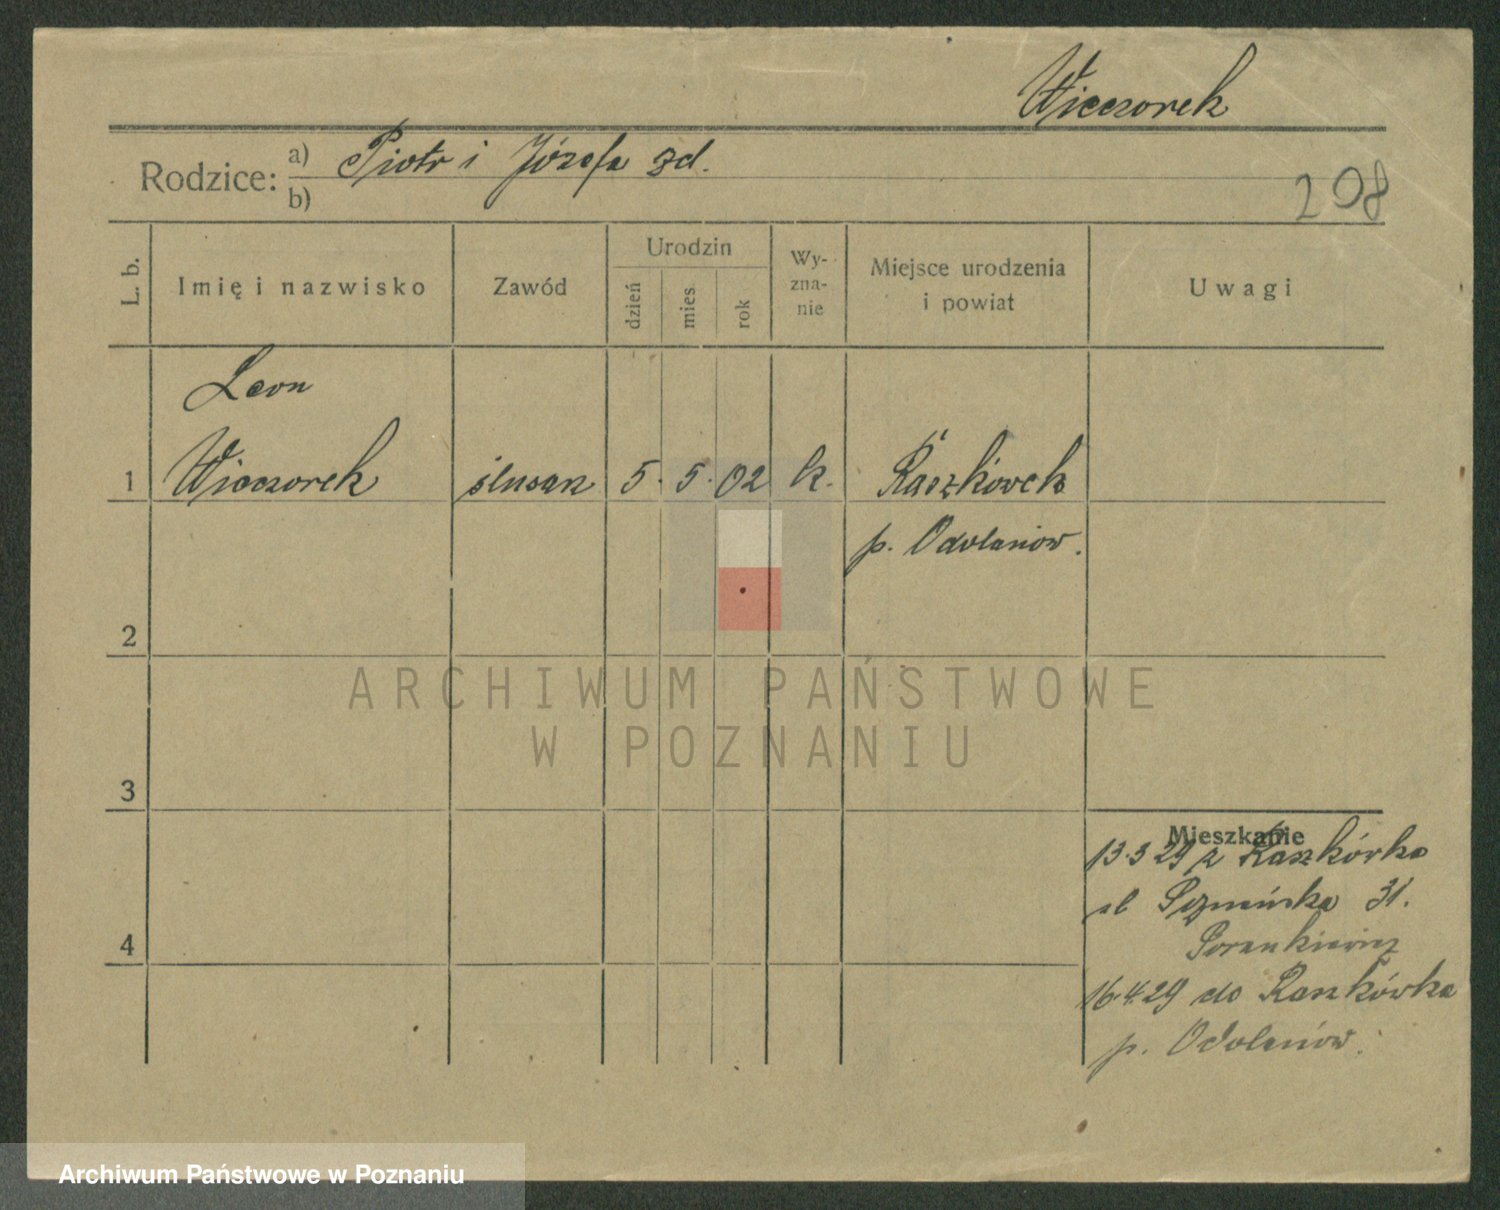 Wieczorek
Rodzice: a) Piotr i Józefa zd.
b)
208
L. b.
Imię i nazwisko
Zawód
Urodzin
dzień
mies.
rok
Wy-
zna-
nie
Miejsce urodzenia
i powiat
Uwagi
Leon
1 Wieczorek ślusarz 5. 5. 02 k. Raszkówek
p. Odolanów.
2
ARCHIWUM PAŃSTWOWE
W POZNANIU
3
Mieszkanie
13.3 29 z Raszkówka
ul 31.
4
16.4.29 do Raszkówka
p. Odolanów.
Archiwum Państwowe w Poznaniu